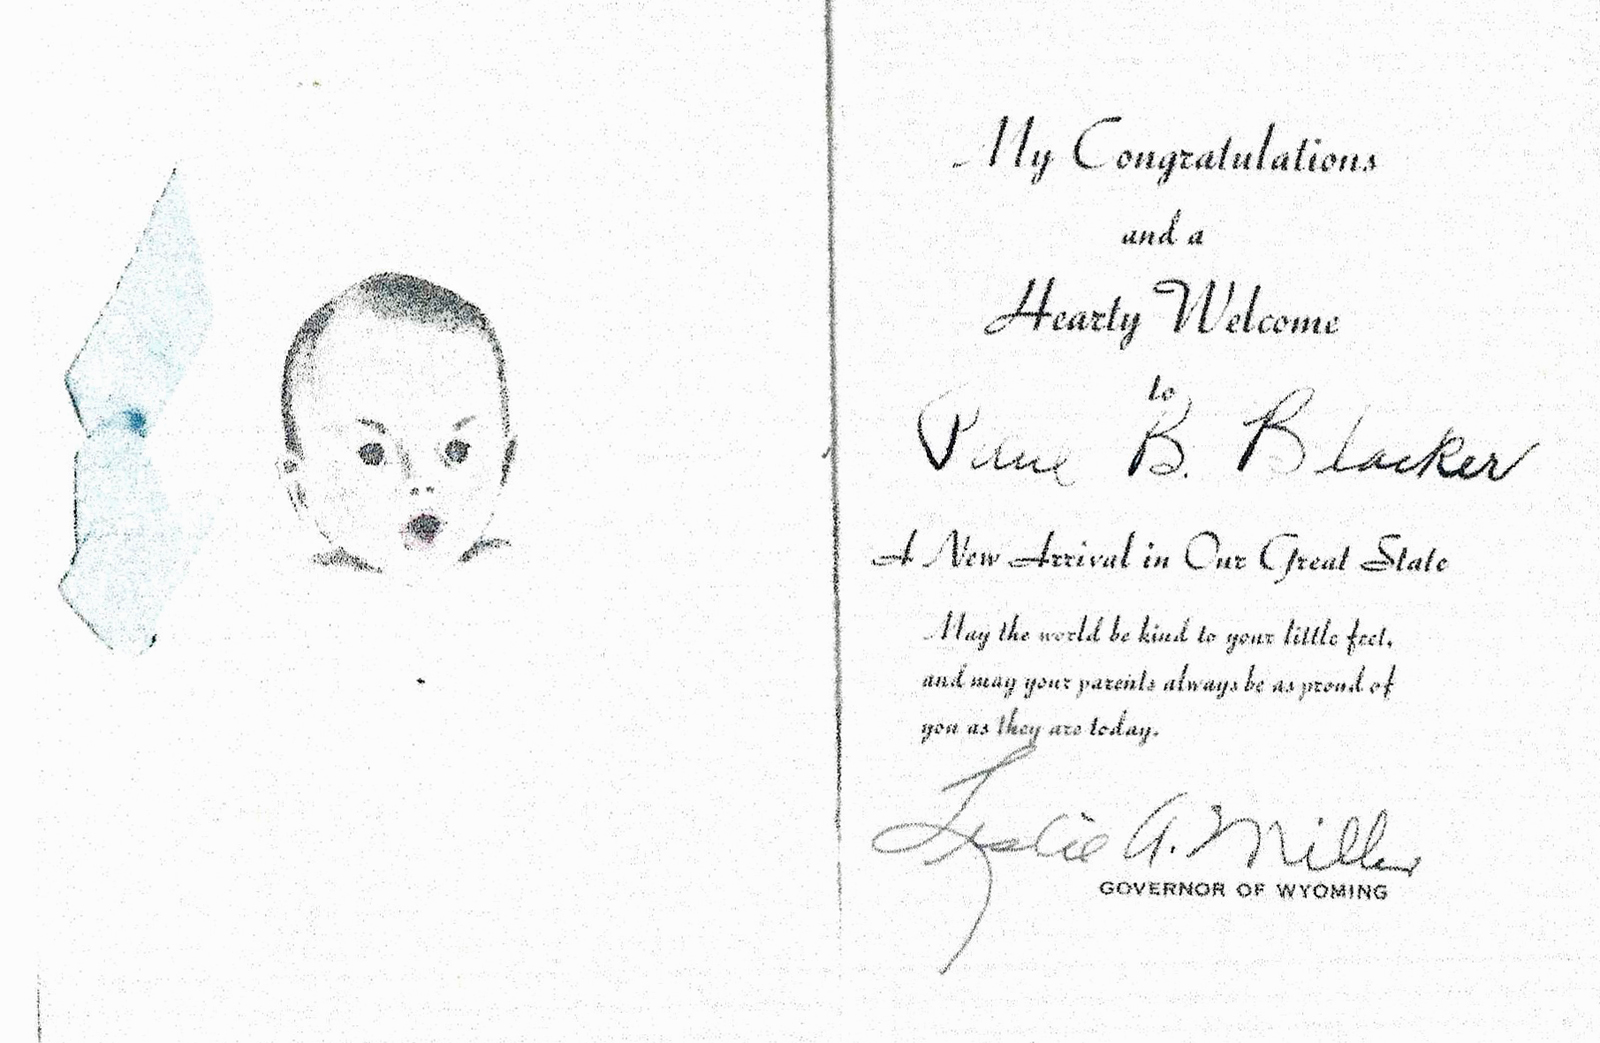 My Congratulations
and a
Hearty Welcome
to
B. Blacker
A New Arrival in Our Great State
May the world be kind to your little feet,
and may your parents always be as proud of
you as they are today.
Leslie A. Miller
GOVERNOR OF WYOMING